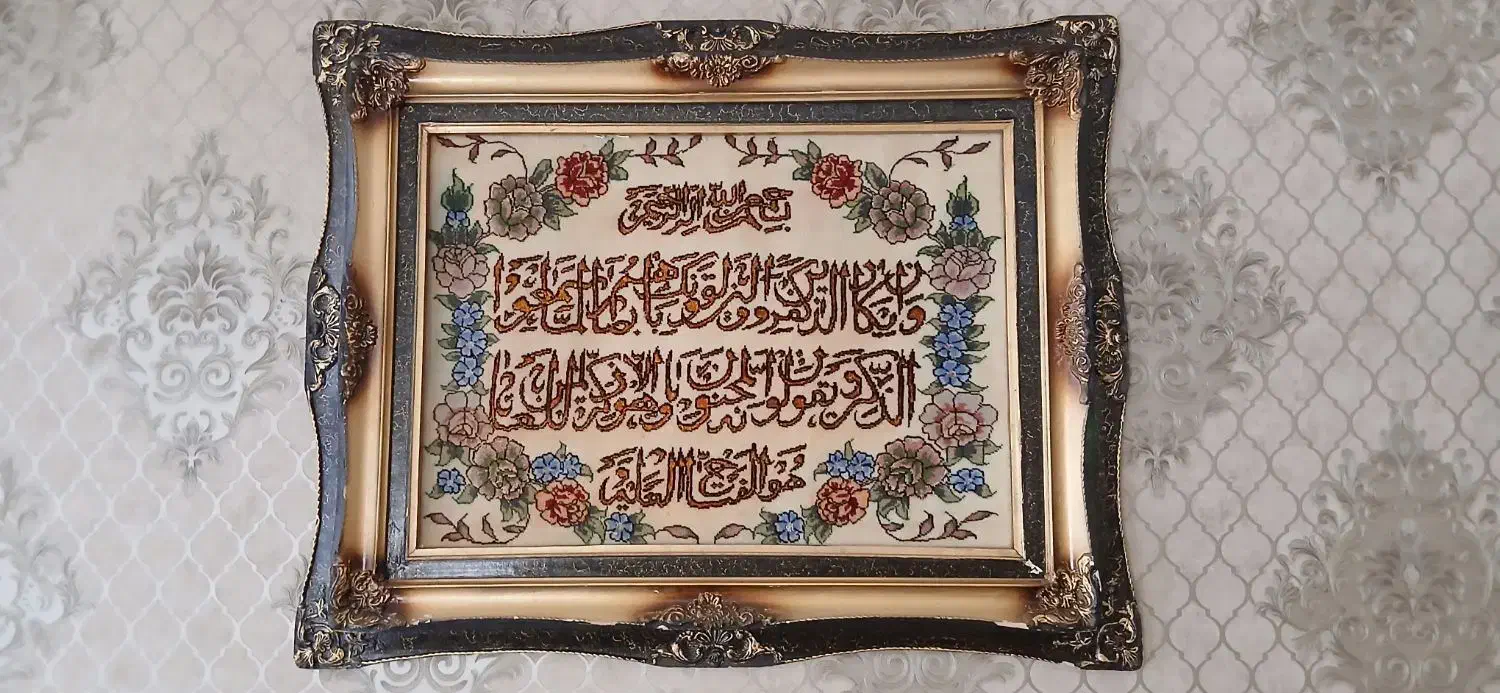 بسم الله الرحمن الرحیم
وان یکاد الذین کفروا لیزلقونک بابصارهم لما سمعوا
الذکر و یقولون انه لمجنون و ما هو الا ذکر للعالمین
هو الفتاح العلیم